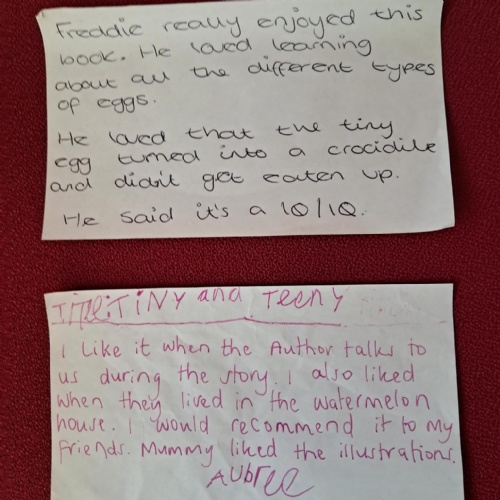 Freddie really enjoyed this
book. He loved learning
about all the different types
of eggs.
He loved that the tiny
egg turned into a crocidile
and didn't get eaten up.
He said it's a 10/10.
TINY and Teeny
I like it when the Author talks to
us during the story. I also liked
when they lived in the watermelon
house. I would recommend it to my
friends. Mummy liked the illustrations.
AUbree